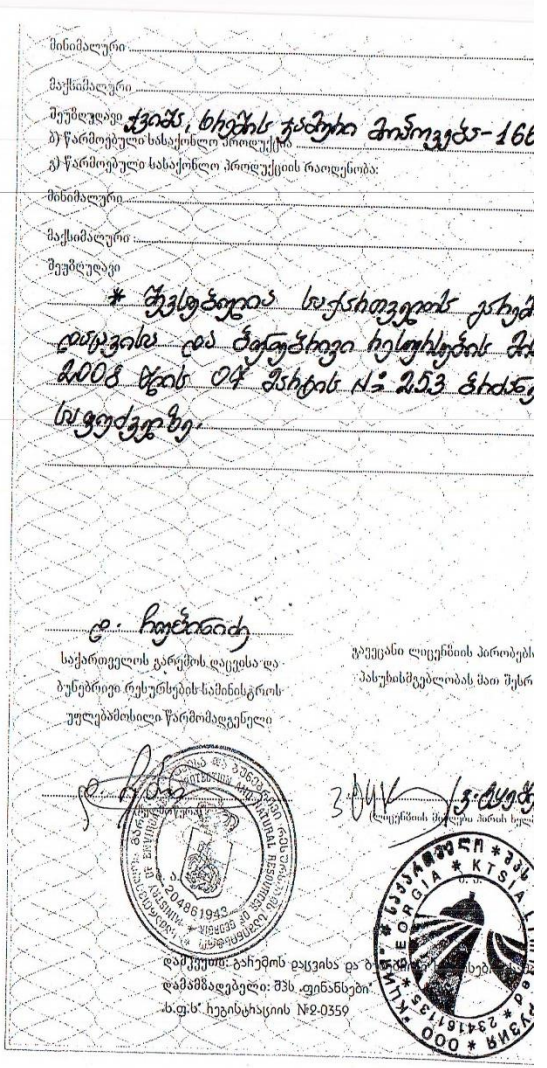 მინიმალური
მაქსიმალური
შეუზღუდავი ქვიშა, ხრეშის ჯამური მოპოვება-166
ბ) წარმოებული სასაქონლო პროდუქცია
გ) წარმოებული სასაქონლო პროდუქციის რაოდენობა:
მინიმალური
მაქსიმალური
შეუზღუდავი
* შევსებულია საქართველოს გარემ
დაცვისა და ბუნებრივი რესურსების მი
2008 წლის 04 მარტის №253 ბრძანე
საფუძველზე.
დ. ჩოგინიძე
საქართველოს გარემოს დაცვისა და
ბუნებრივი რესურსების სამინისტროს
უფლებამოსილი წარმომადგენელი
გავეცანი ლიცენზიის პირობებს
პასუხისმგებლობას მათ შესრ
MINISTRY OF ENVIRONMENT PROTECTION AND NATURAL RESOURCES OF GEORGIA
204861943
* საქართველო * შპს
GEORGIA * KTSIA Limited * 234161135
ООО "КЦИЯ" * ГРУЗИЯ
დამკვეთი: გარემოს დაცვისა და
დამამზადებელი: შპს „ფინანსები"
ს.ფ.ს" რეგისტრაციის №2-0359